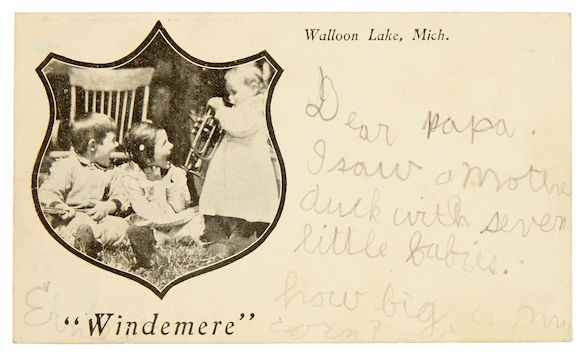 Walloon Lake, Mich.
Dear papa.
I saw a mother
duck with seven
little babies.
how big is my
corn?
"Windemere"